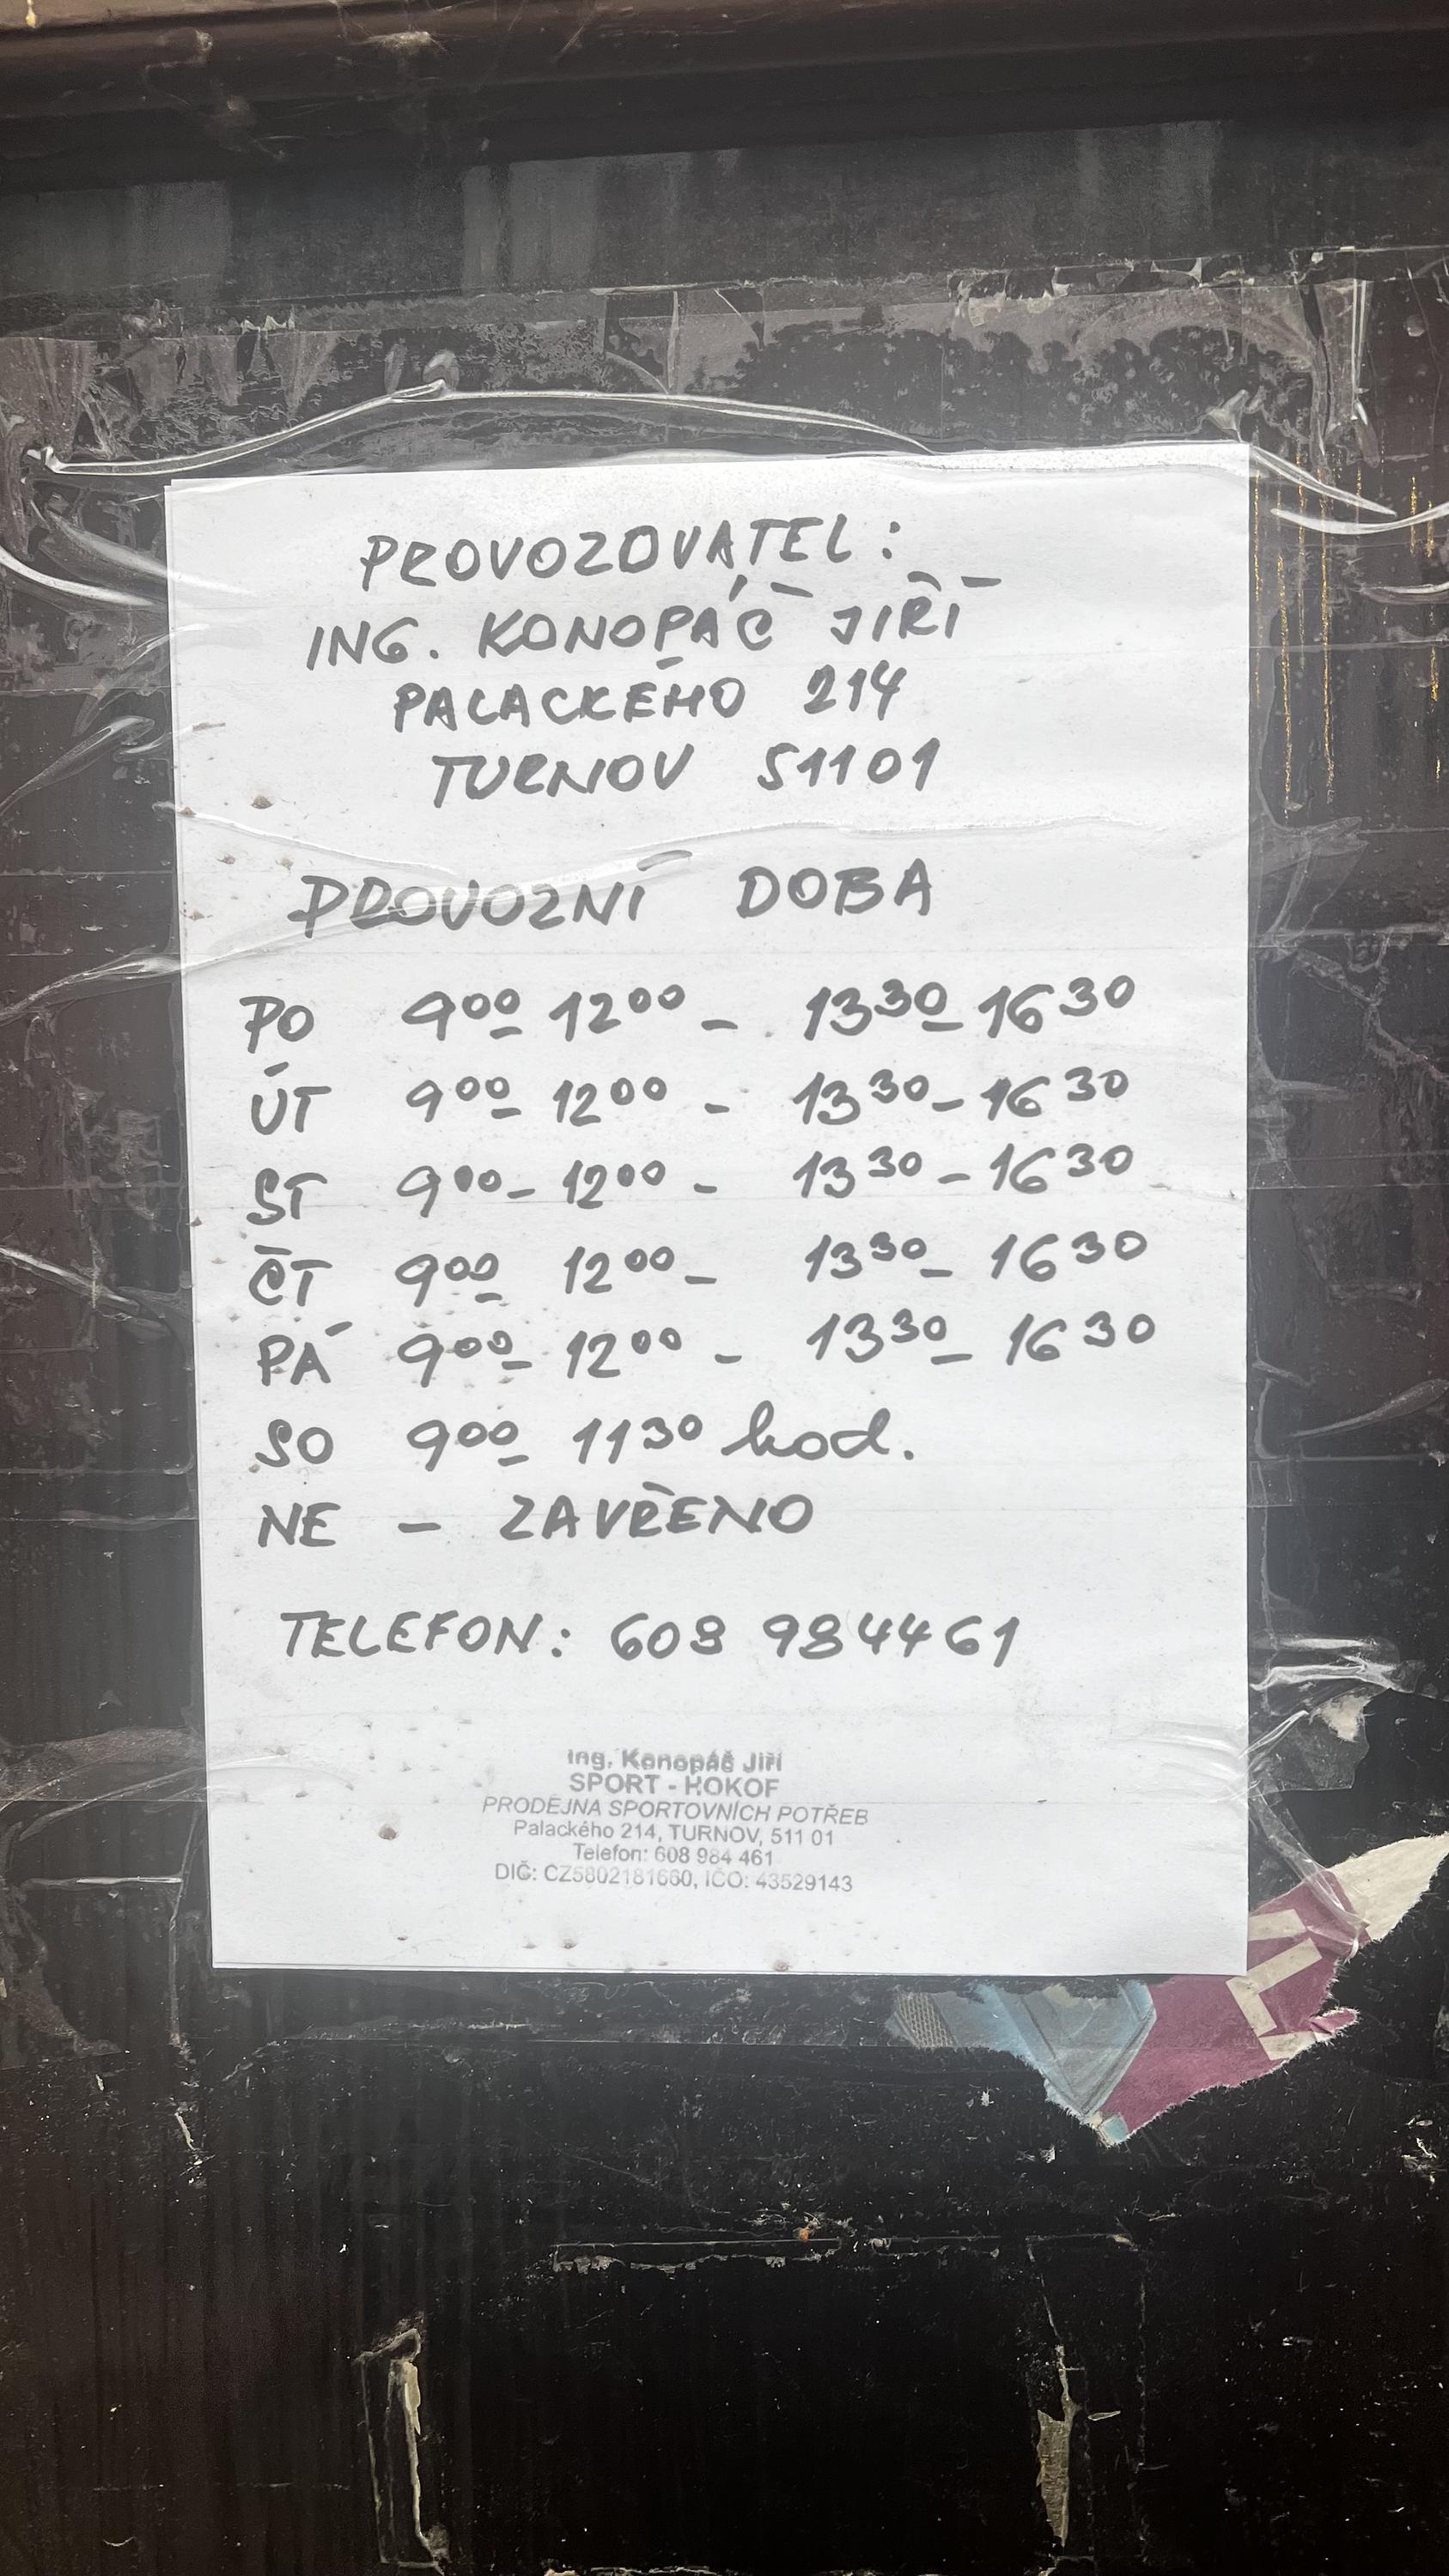 PROVOZOVATEL:
ING. KONOPÁČ JIŘÍ
PALACKÉHO 214
TURNOV 51101
PROVOZNÍ DOBA
PO 9⁰⁰- 12⁰⁰ - 13³⁰- 16³⁰
ÚT 9⁰⁰- 12⁰⁰ - 13³⁰- 16³⁰
ST 9⁰⁰- 12⁰⁰ - 13³⁰ - 16³⁰
ČT 9⁰⁰- 12⁰⁰ - 13³⁰- 16³⁰
PÁ 9⁰⁰- 12⁰⁰ - 13³⁰- 16³⁰
SO 9⁰⁰- 11³⁰ hod.
NE - ZAVŘENO
TELEFON: 608 984461
Ing. Konopáč Jiří
SPORT - HOKOF
PRODEJNA SPORTOVNÍCH POTŘEB
Palackého 214, TURNOV, 511 01
Telefon: 608 984 461
DIČ: CZ5802181660, IČO: 43529143